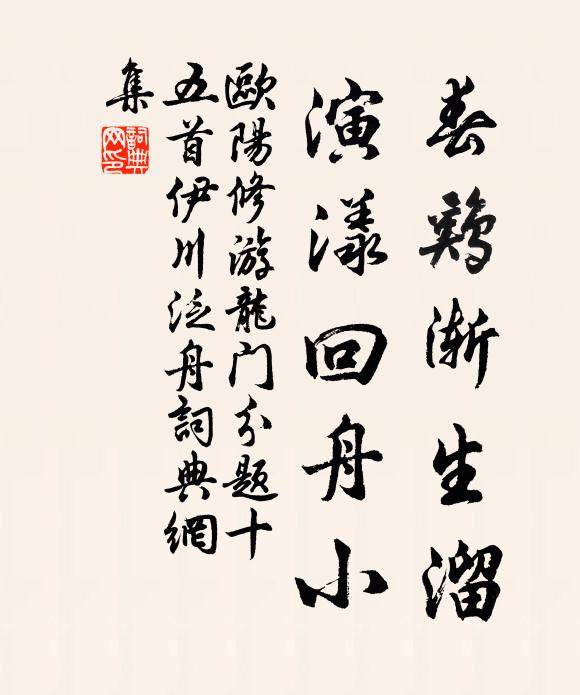 春鷄漸生溜
演漾回舟小
歐陽修游龍门分题十
五首伊川泛舟詞典網
集
詞典
网印